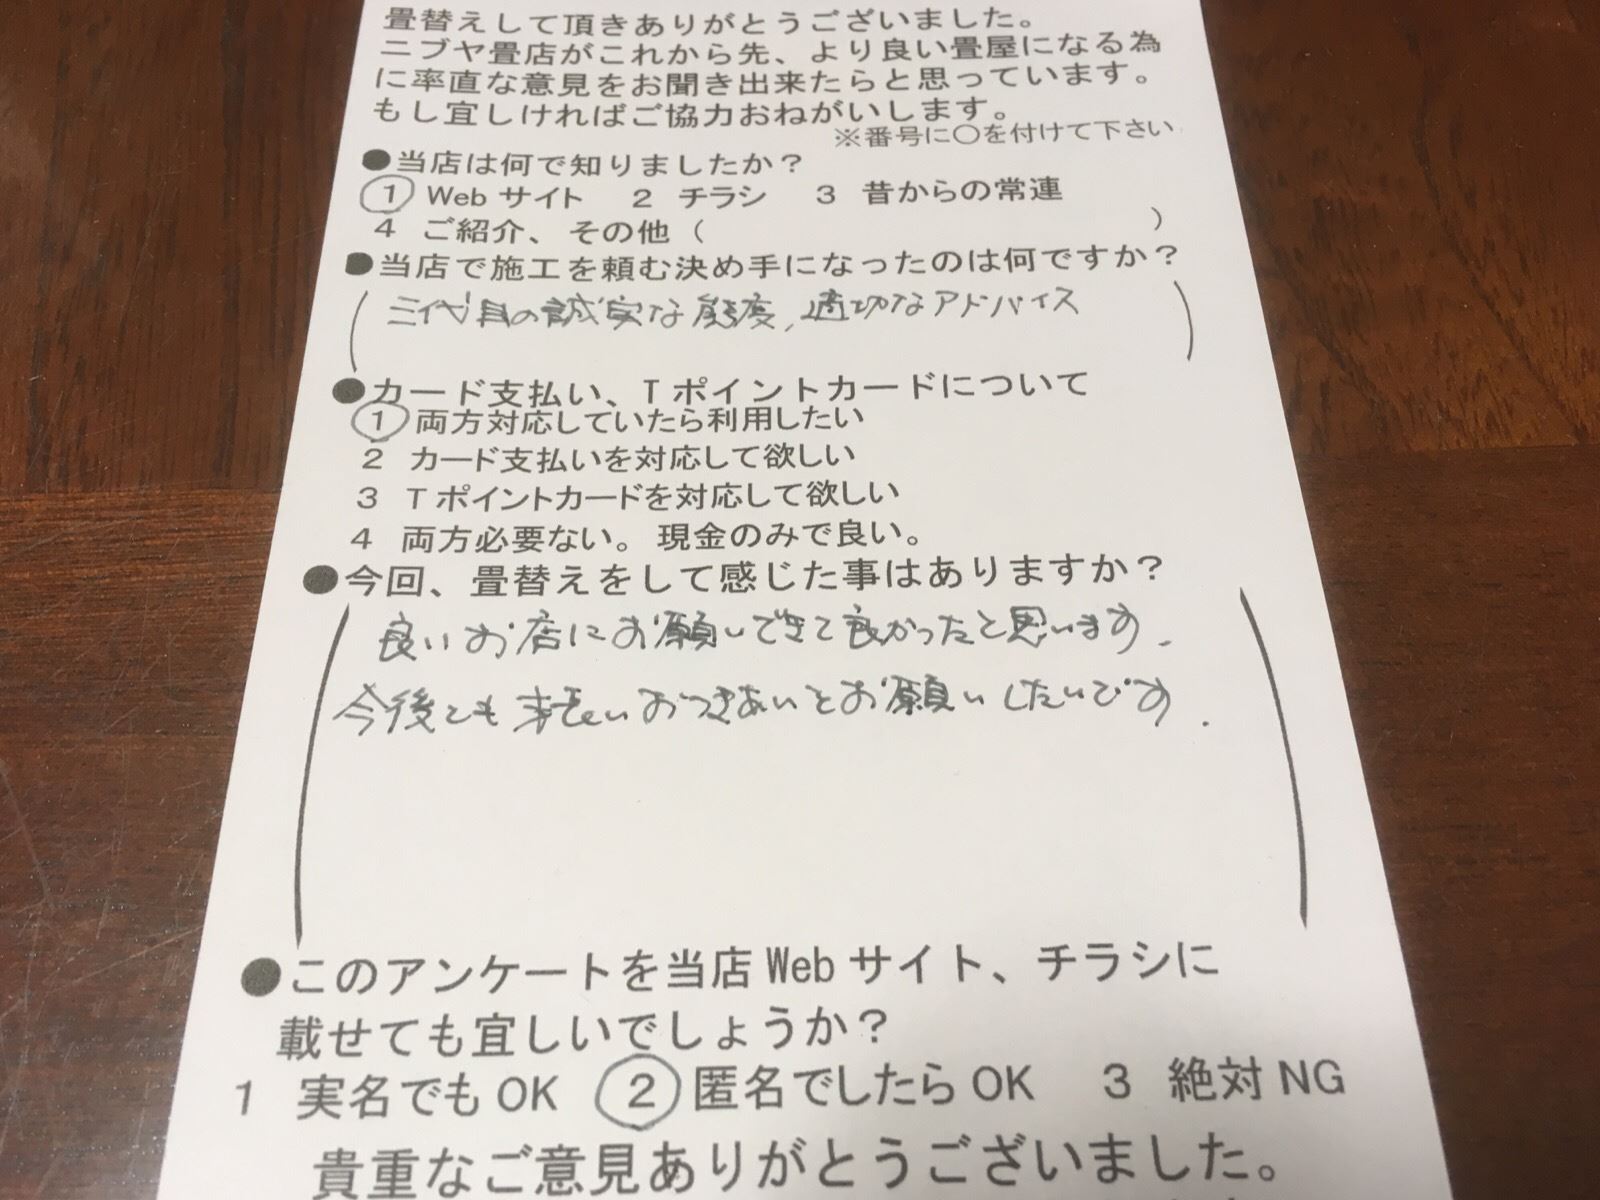 畳替えして頂きありがとうございました。
ニブヤ畳店がこれから先、より良い畳屋になる為
に率直な意見をお聞き出来たらと思っています。
もし宜しければご協力おねがいします。
※番号に〇を付けて下さい
●当店は何で知りましたか？
1 Web サイト 2 チラシ 3 昔からの常連
4 ご紹介、その他（ ）
●当店で施工を頼む決め手になったのは何ですか？
三代目の誠実な態度、適切なアドバイス
●カード支払い、Tポイントカードについて
1 両方対応していたら利用したい
2 カード支払いを対応して欲しい
3 Tポイントカードを対応して欲しい
4 両方必要ない。現金のみで良い。
●今回、畳替えをして感じた事はありますか？
良いお店にお願いできて良かったと思います.
今後とも末長いおつきあいをお願いしたいです.
●このアンケートを当店Webサイト、チラシに
載せても宜しいでしょうか？
1 実名でもOK 2 匿名でしたらOK 3 絶対NG
貴重なご意見ありがとうございました。